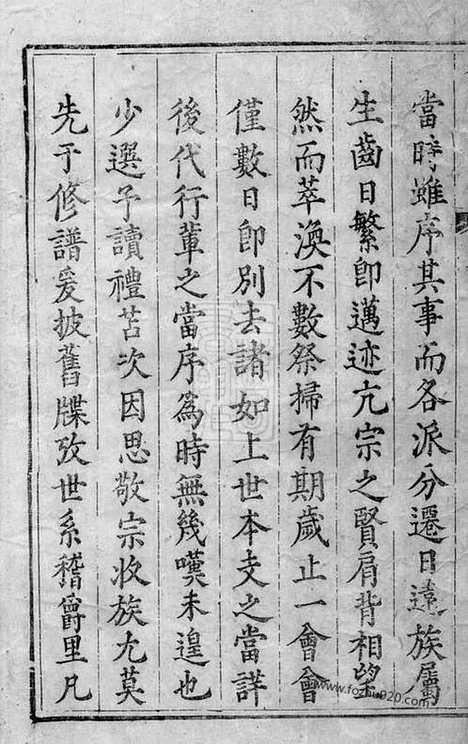 當時雖序其事而各派分遷日遠族屬
生齒日繁即邁迹亢宗之賢肩背相望
然而萃渙不數祭掃有期歲止一會會
僅數日即別去諸如上世本支之當詳
後代行輩之當序為時無幾嘆未遑也
少選予讀禮苫次因思敬宗收族尤莫
先于修譜爰披舊牒攷世系稽爵里凡